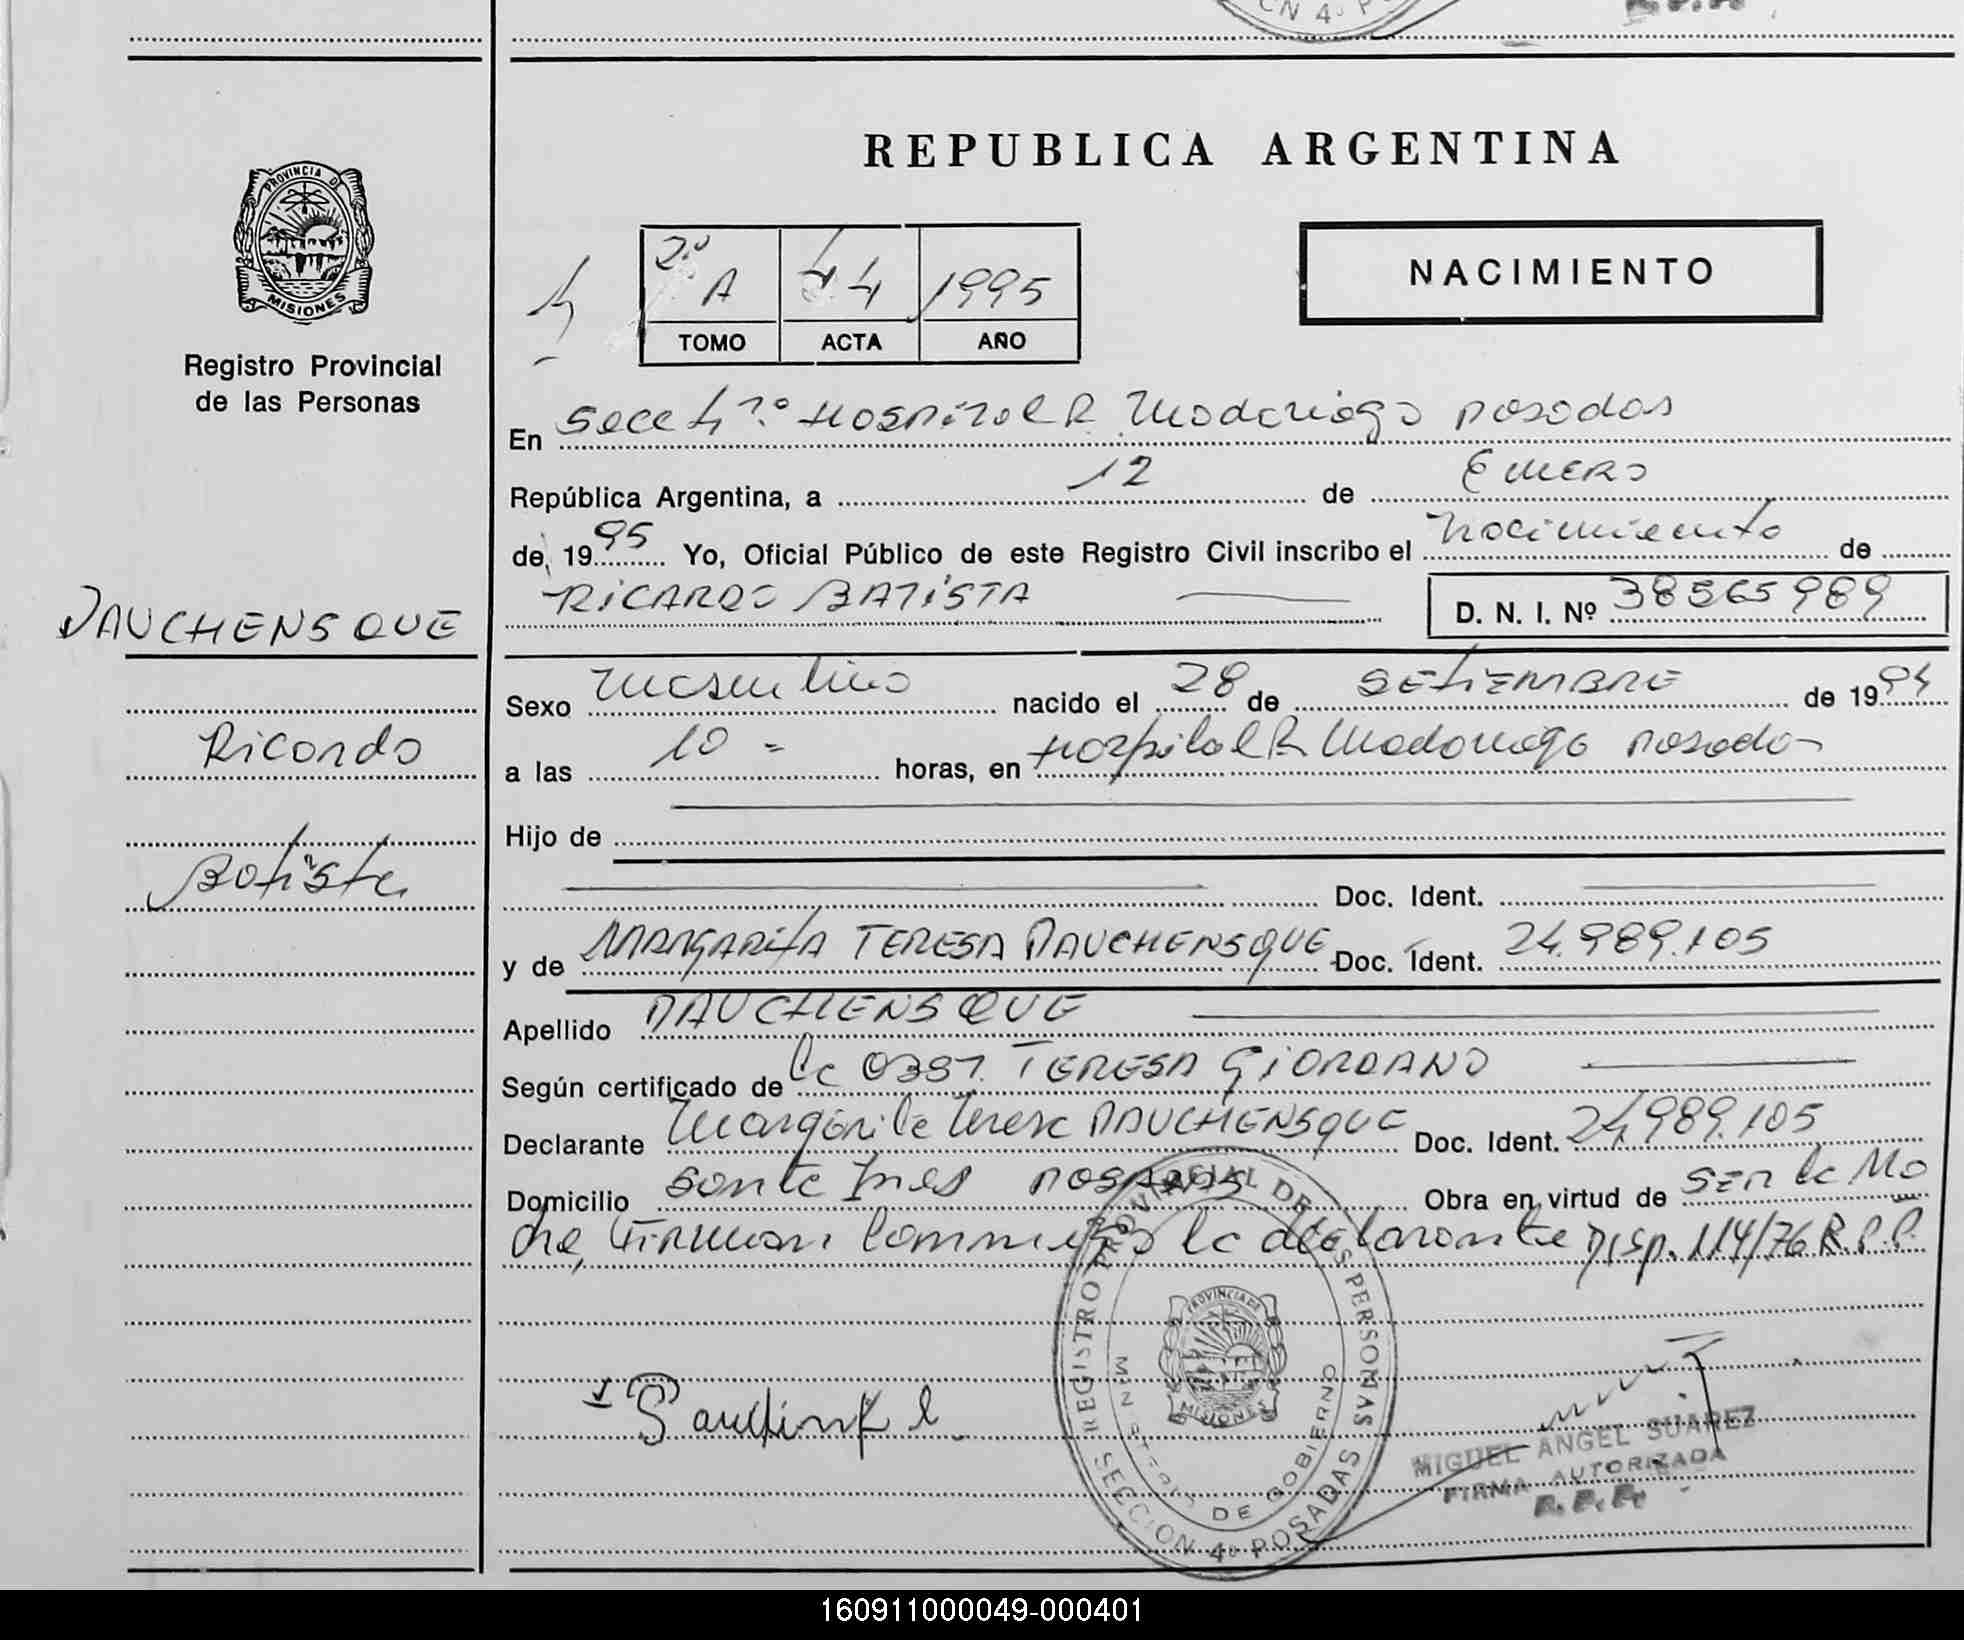 CN 4º P
REPUBLICA ARGENTINA
PROVINCIA DE
MISIONES
Registro Provincial
de las Personas
2º A 44 1995
TOMO ACTA AÑO
NACIMIENTO
En Secc 4º Hospital R Madariaga Posadas
República Argentina, a 12 de ENERO
de 1995 Yo, Oficial Público de este Registro Civil inscribo el Nacimiento de
RICARDO BATISTA D. N. I. Nº 38565989
DAUCHENSQUE
Ricardo
Batista
Sexo Masculino nacido el 28 de SETIEMBRE de 1994
a las 10 = horas, en Hospital R Madariaga Posadas
Hijo de
Doc. Ident.
y de MARGARITA TERESA DAUCHENSQUE Doc. Ident. 24.989.105
Apellido DAUCHENSQUE
Según certificado de la OBST. TERESA GIORDANO
Declarante Margarita Teresa DAUCHENSQUE Doc. Ident. 24.989.105
Domicilio Santa Ines POSADAS Obra en virtud de SER la Ma
dre, Firman conmigo la declarante Disp. 114/76 R.P.P.
REGISTRO PROVINCIAL DE LAS PERSONAS
MINISTERIO DE GOBIERNO
PROVINCIA DE
MISIONES
SECCION 4º POSADAS
MIGUEL ANGEL SUAREZ
FIRMA AUTORIZADA
R.P.P.
160911000049-000401